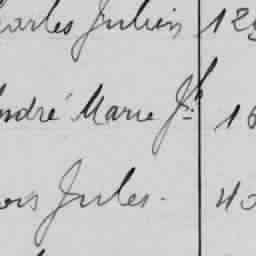 Charles Julien 12
André Marie Jh 16
Jules. 40